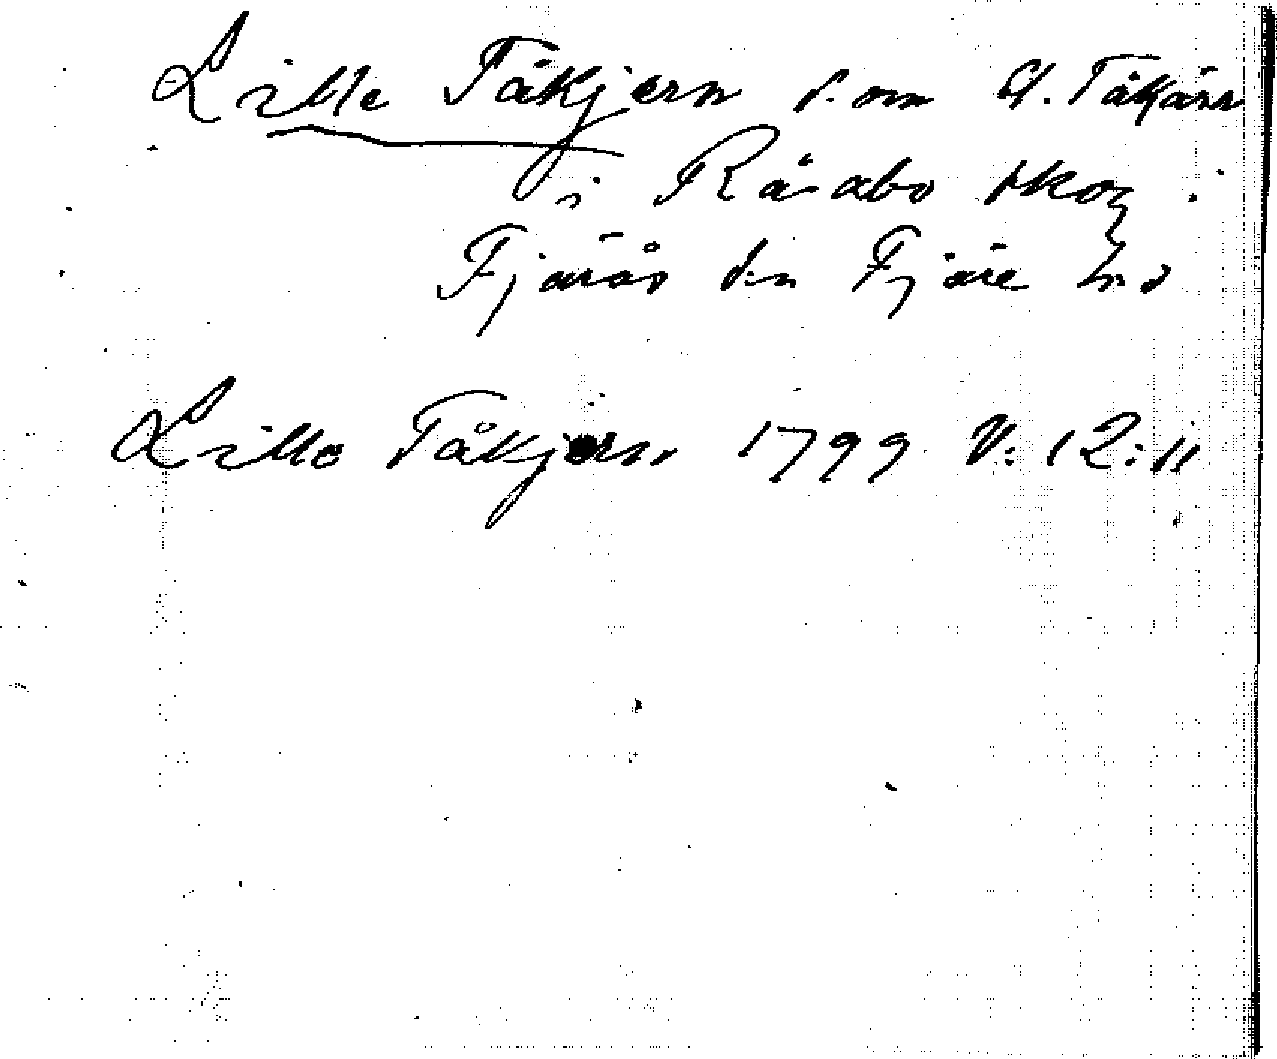 Lille Tåkjern s. om St. Tåkärr
i Råsabo skog i
Fjärås sn Fjäre hd
Lille Tåkjern 1799 V: 12:11